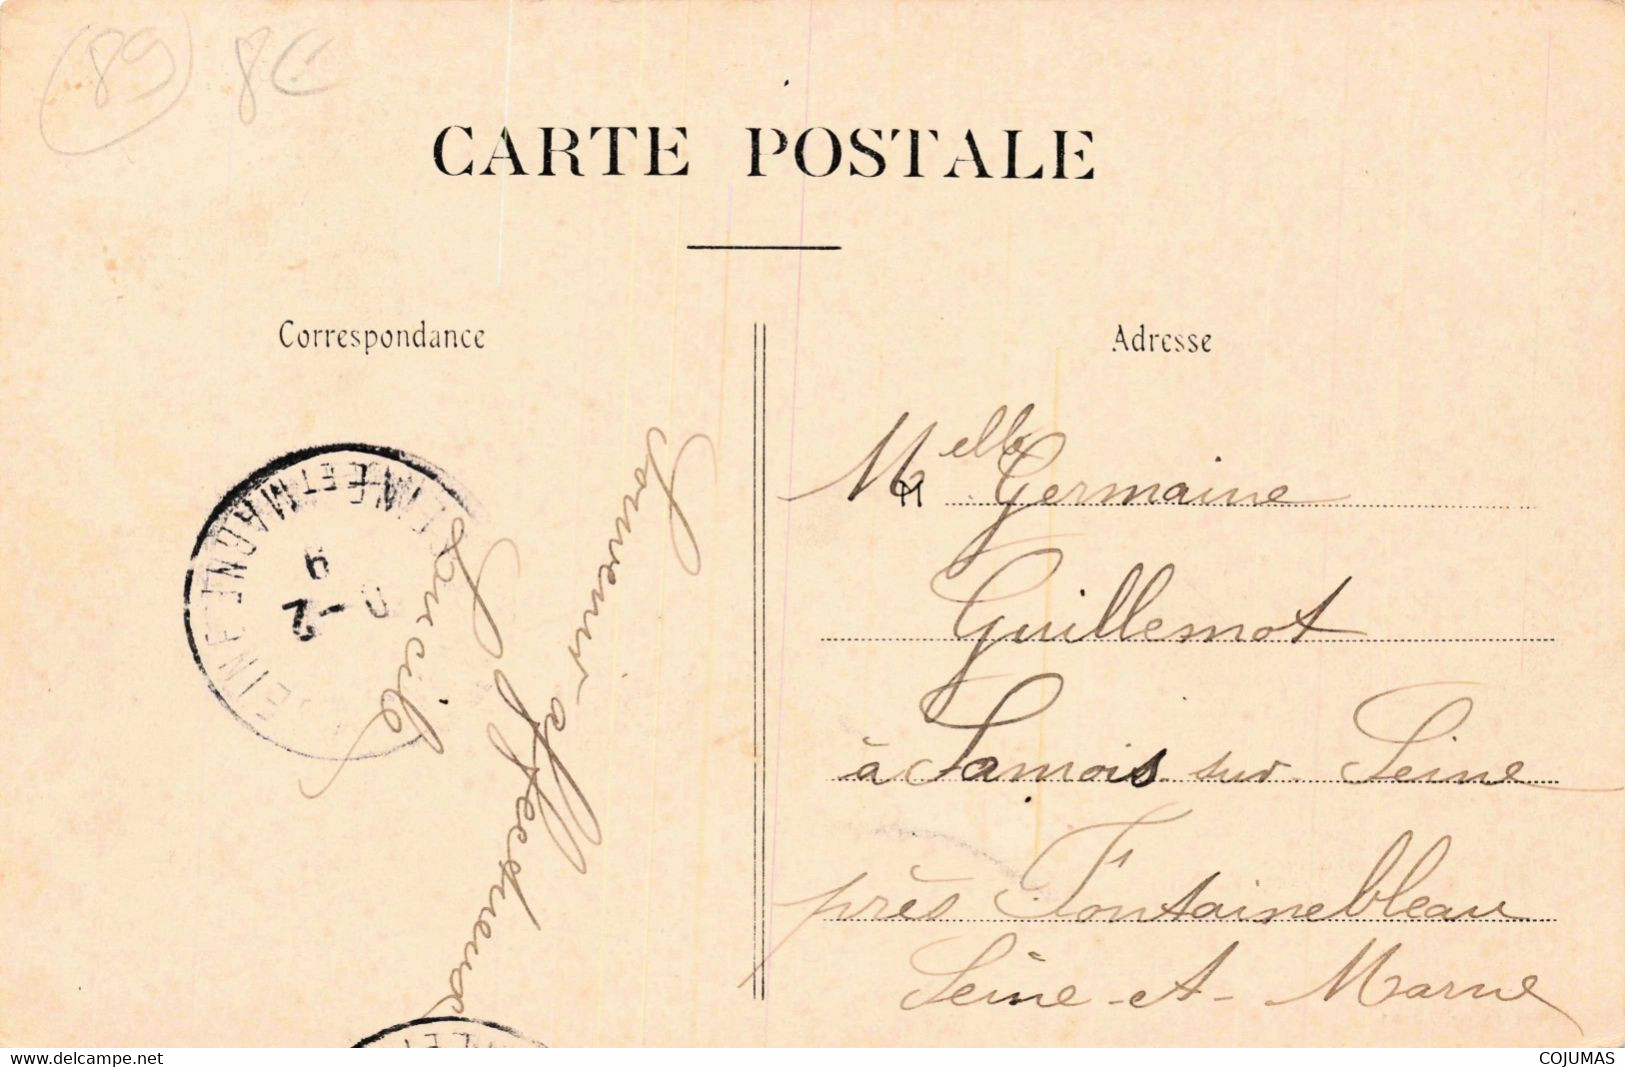 (89) 8€
CARTE POSTALE
Correspondance
Adresse
Souvenir
affectueux
Lucile
SEINE-ET-MARNE
9
-2
Melle Germaine
Guillemot
à Samois sur Seine
près Fontainebleau
Seine-et-Marne
www.delcampe.net
COJUMAS